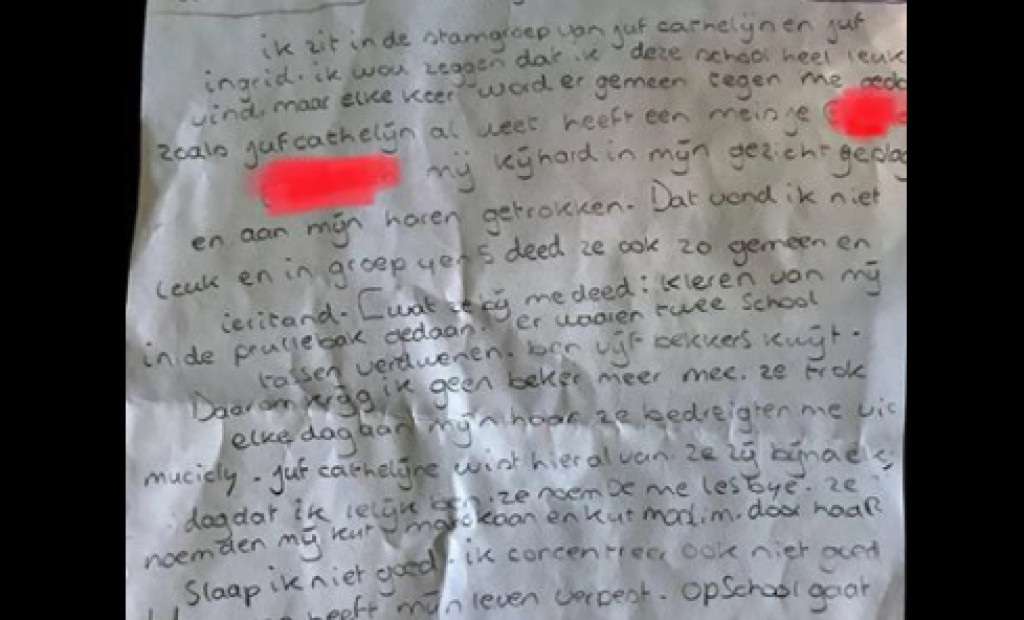 ik zit in de stamgroep van juf cathelijn en juf
ingrid. ik wou zeggen dat ik deze school heel leuk
vind, maar elke keer word er gemeen tegen me
zoals juf cathelijn al weet heeft een meisje
mij kijhard in mijn gezicht
en aan mijn haren getrokken. Dat vond ik niet
leuk en in groep 4 en 5 deed ze ook zo gemeen en
ieritand. [wat ze bij me deed: kleren van mij
in de prullebak gedaan. er waaren twee school
tassen verdwenen. ben vijf bekkers kwijt.
Daarom krijg ik geen beker meer mee. ze trok
elke dag aan mijn haar ze bedreigten me via
mucicly. juf cathelijne wist hier al van. ze zij bijna
dag dat ik lelijk ben. ze noemde me lesbye. ze
noemden mij kut marokaan en kut moslim. door haar
Slaap ik niet goed. ik concentreer ook niet goed
heeft mijn leven verpest. Op School gaat